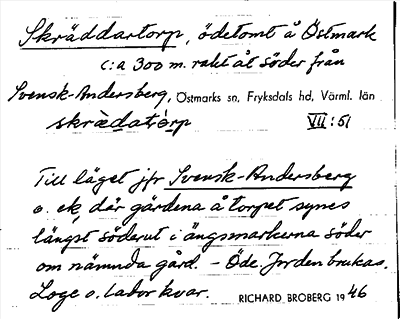 Skräddartorp, ödetomt å Östmark
c:a 300 m. rakt åt söder från
Svensk-Andersberg, Östmarks sn, Fryksdals hd, Värml. län
skrædatórp VII:51
Till läget jfr Svensk-Andersberg
o. ek, där gärdena å torpet synes
längst söderut i ängsmarkerna söder
om nämnda gård. – Öde. Jorden brukas.
Loge o. labor kvar. RICHARD BROBERG 1946